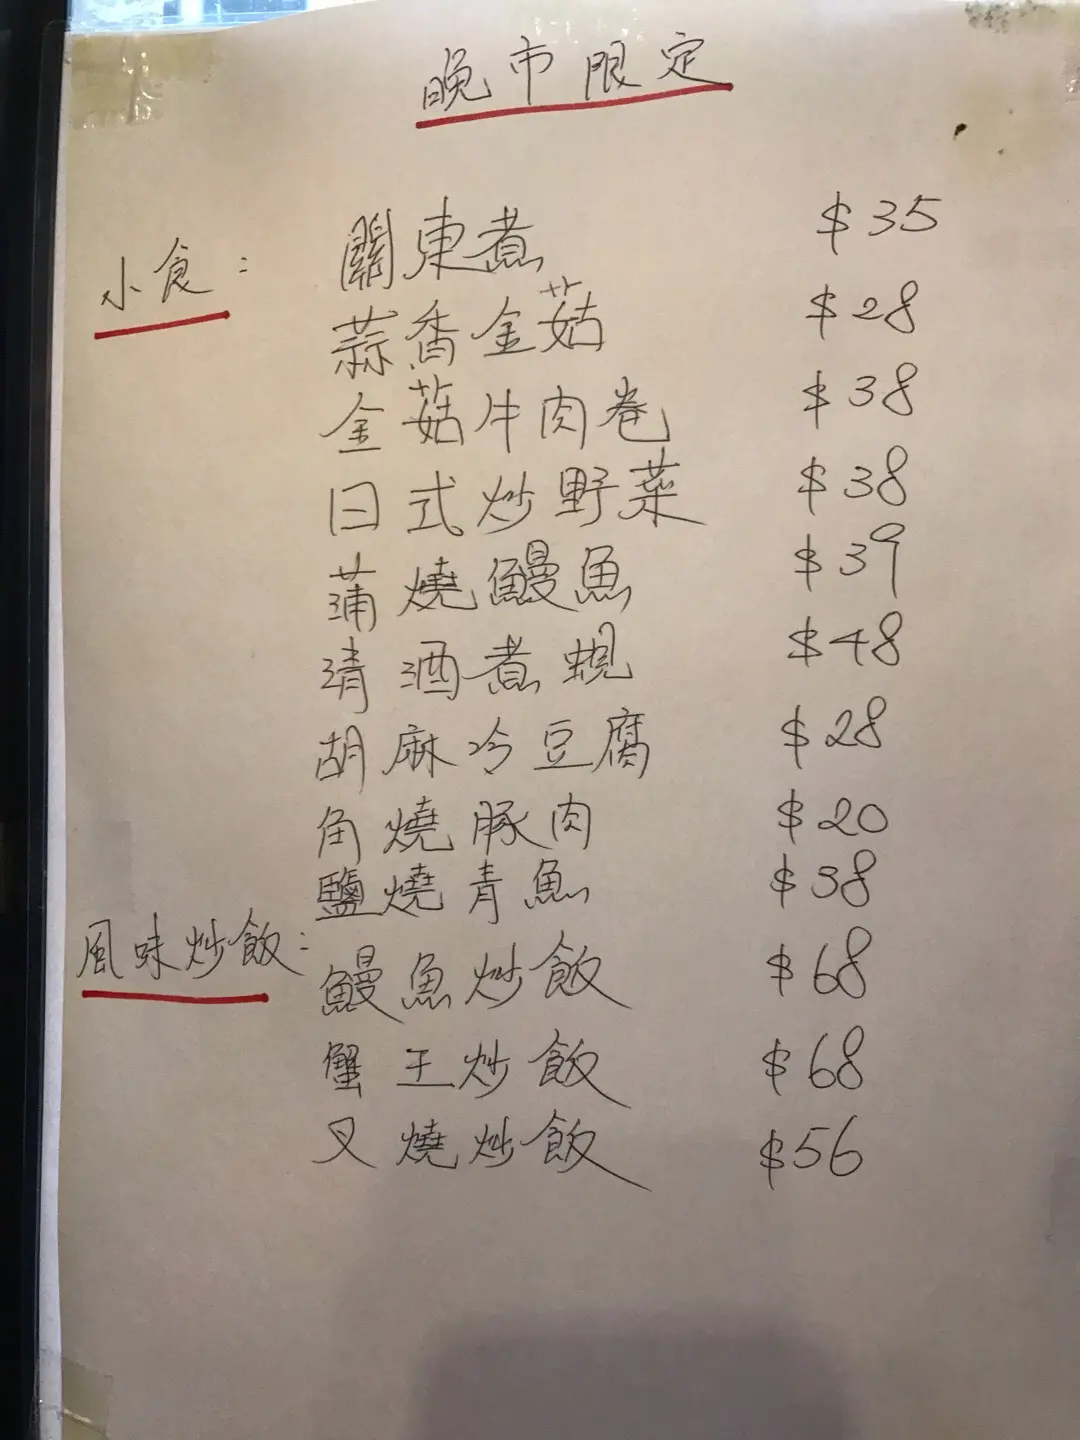 晚市限定
小食：
關東煮 $35
蒜香金菇 $28
金菇牛肉卷 $38
日式炒野菜 $38
蒲燒鰻魚 $39
清酒煮蜆 $48
胡麻冷豆腐 $28
角燒豚肉 $20
鹽燒青魚 $38
風味炒飯：
鰻魚炒飯 $68
蟹王炒飯 $68
叉燒炒飯 $56